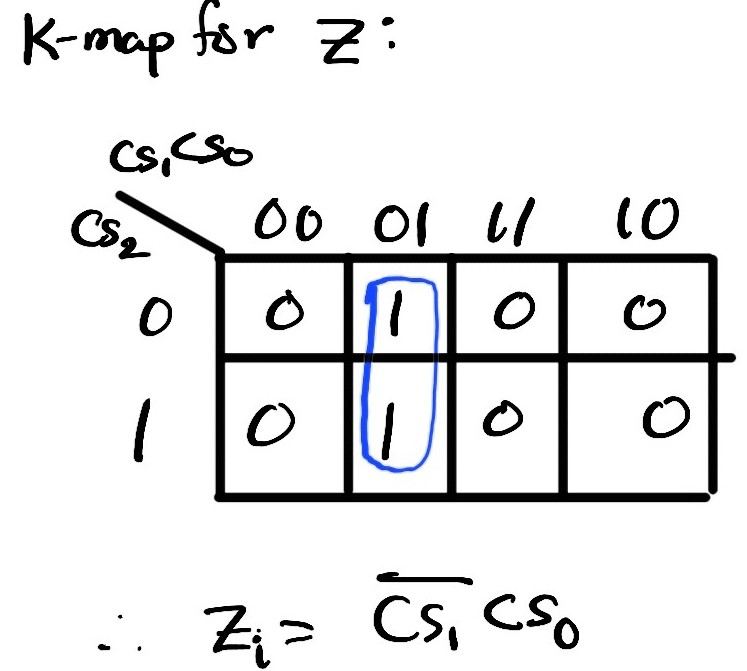 K-map for Z:
CS₁CS₀
CS₂ 00 01 11 10
0 0 1 0 0
1 0 1 0 0
∴ Zᵢ = C̅S̅₁ CS₀